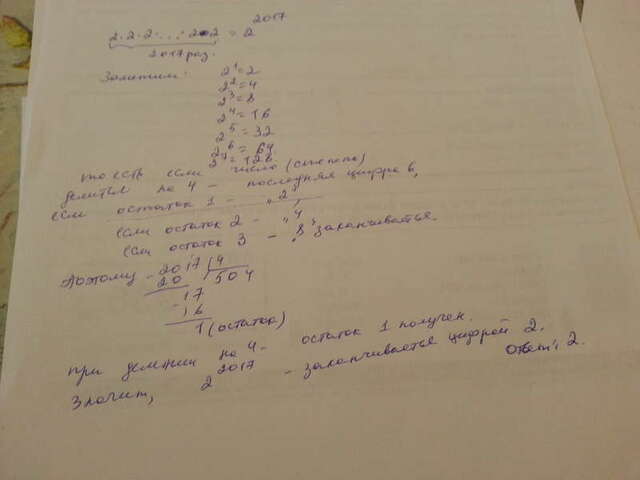 2·2·2·...·2·2 = 2^2017
2017 раз.
Заметим: 2^1=2
2^2=4
2^3=8
2^4=16
2^5=32
2^6=64
2^7=128.
то есть если число (степень)
делится на 4 – последняя цифра 6,
если остаток 1 – „2"
если остаток 2 – „4"
если остаток 3 – „8" заканчивается.
Поэтому 2017 | 4
20 504
17
16
1 (остаток)
при делении на 4 – остаток 1 получен.
Значит, 2^2017 – заканчивается цифрой 2.
Ответ: 2.